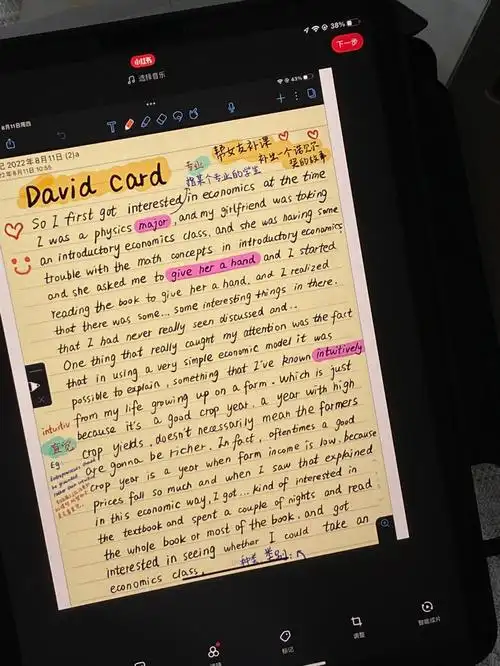 38%
小红书
下一步
选择音乐
8月11日周四
43%
记 2022年8月11日 (2)a
22年8月11日 10:55
帮女友补课
补出一个诺贝尔奖的故事
David Card
专业
指某个专业的学生
So I first got interested in economics at the time
I was a physics major, and my girlfriend was taking
an introductory economics class, and she was having some
trouble with the math concepts in introductory economics
and she asked me to give her a hand and I started
reading the book to give her a hand, and I realized
that there was some... some interesting things in there.
that I had never really seen discussed and...
One thing that really caught my attention was the fact
that in using a very simple economic model it was
possible to explain, something that I've known intuitively
from my life growing up on a farm. Which is just
because it's a good crop year, a year with high
crop yields, doesn't necessarily mean the farmers
are gonna be richer. In fact, oftentimes a good
crop year is a year when farm income is low, because
prices fall so much and when I saw that explained
in this economic way, I got... kind of interested in
the textbook and spent a couple of nights and read
the whole book or most of the book, and got
interested in seeing whether I could take an
economics class.
种类 类别
intuitiv
直觉
Eg:
标记
调整
智能成片